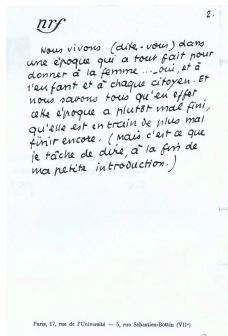 nrf
2.
Nous vivons (dites-vous) dans
une époque qui a tout fait pour
donner à la femme ... – oui, et à
l'enfant et à chaque citoyen. Et
nous savons tous qu'en effet
cette époque a plutôt mal fini,
qu'elle est en train de plus mal
finir encore. (Mais c'est ce que
je tâche de dire, à la fin de
ma petite introduction.)
Paris, 17, rue de l'Université — 5, rue Sébastien-Bottin (VIIe)